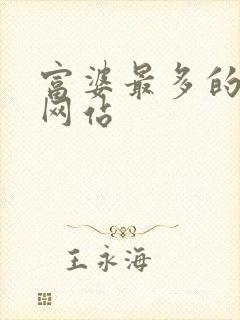 富婆最多的
网站
王永海